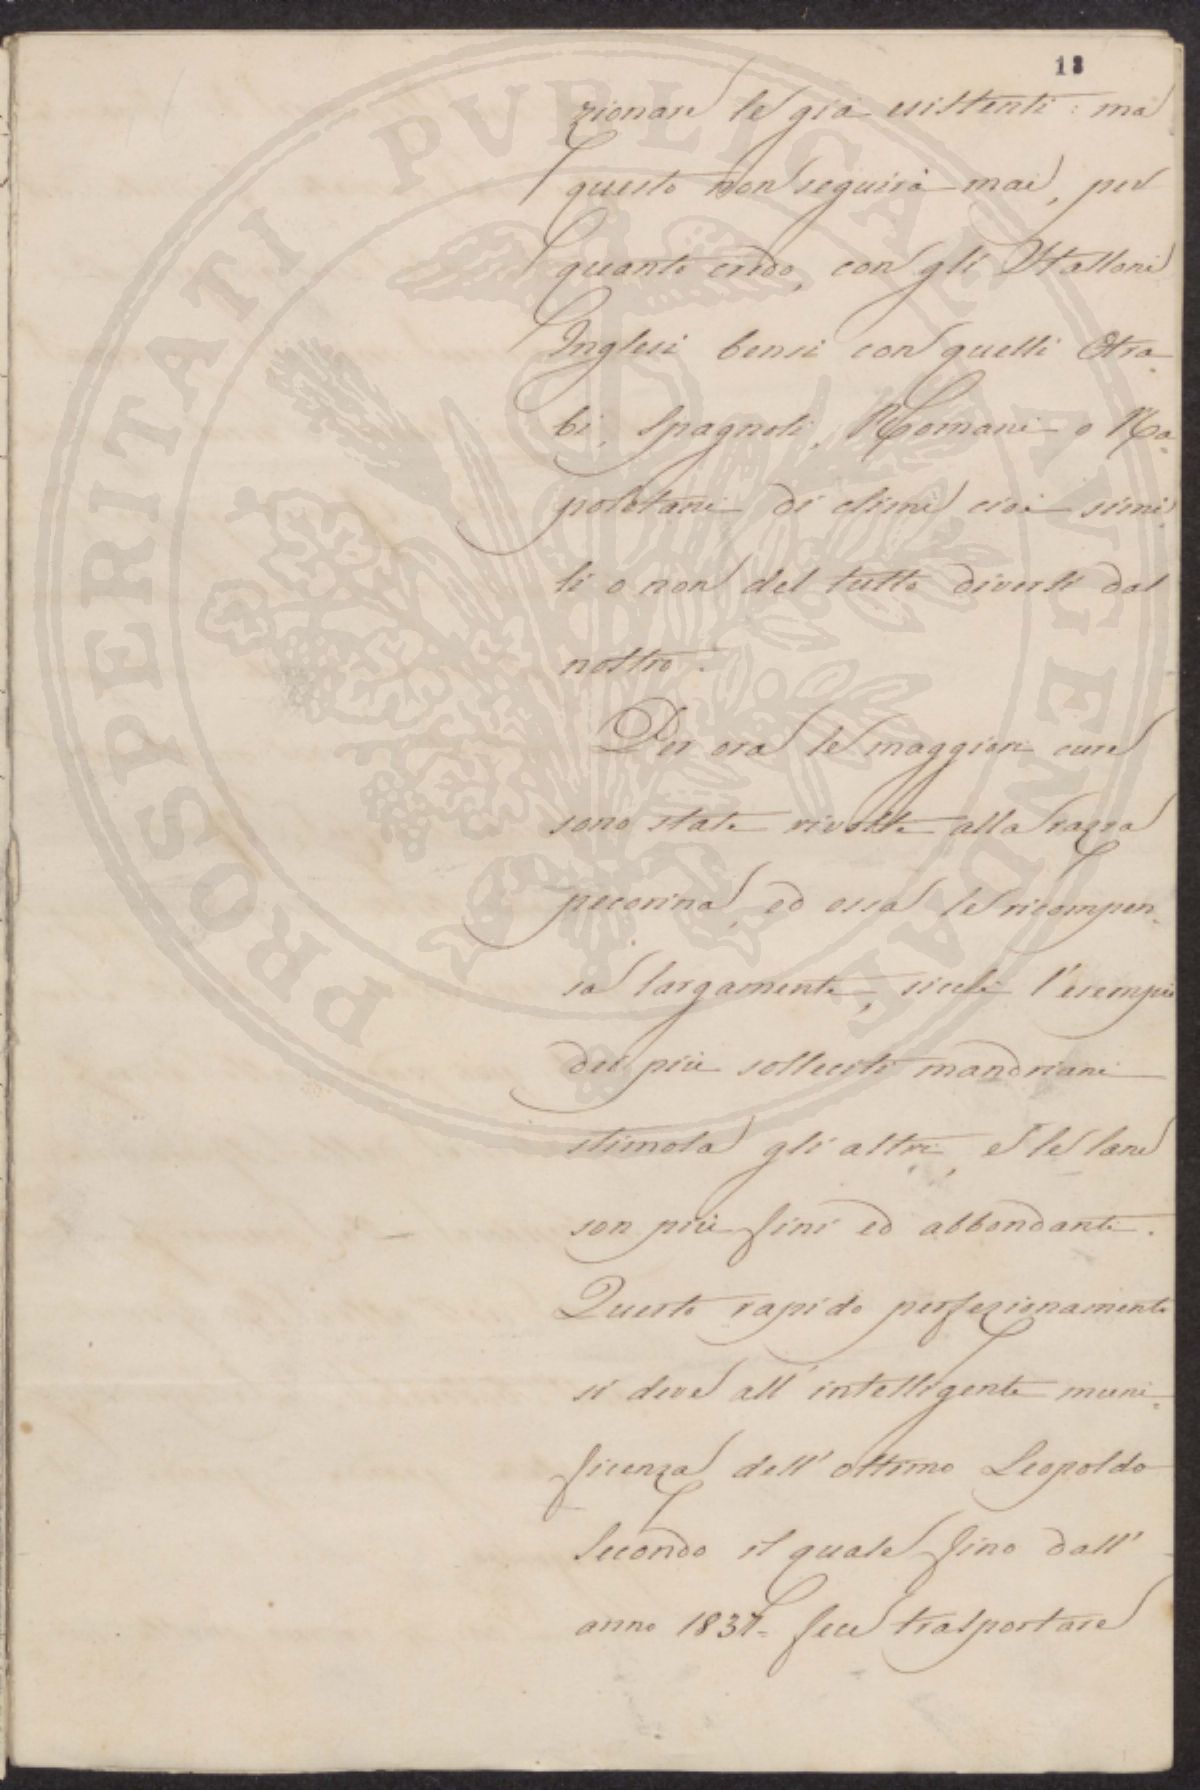 13
zionare le già esistenti: ma
questo non seguirà mai, per
quanto credo, con gli Stalloni
Inglesi bensi con quelli Ara-
bi, Spagnoli, Romani o Na-
poletani di climi cioè simi-
li o non del tutto diversi dal
nostro.
Per ora le maggiori cure
sono state rivolte alla razza
pecorina, ed essa le ricompen-
sa largamente, sicchè l'esempio
dei più solleciti mandriani
stimola gli altri, e le lane
son più fini ed abbondanti.
Questo rapido perfezionamento
si deve all'intelligente muni-
ficenza dell'ottimo Leopoldo
Secondo il quale fino dall'
anno 1837 fece trasportare
PROSPERITATI PVBLICAE AVGENDAE